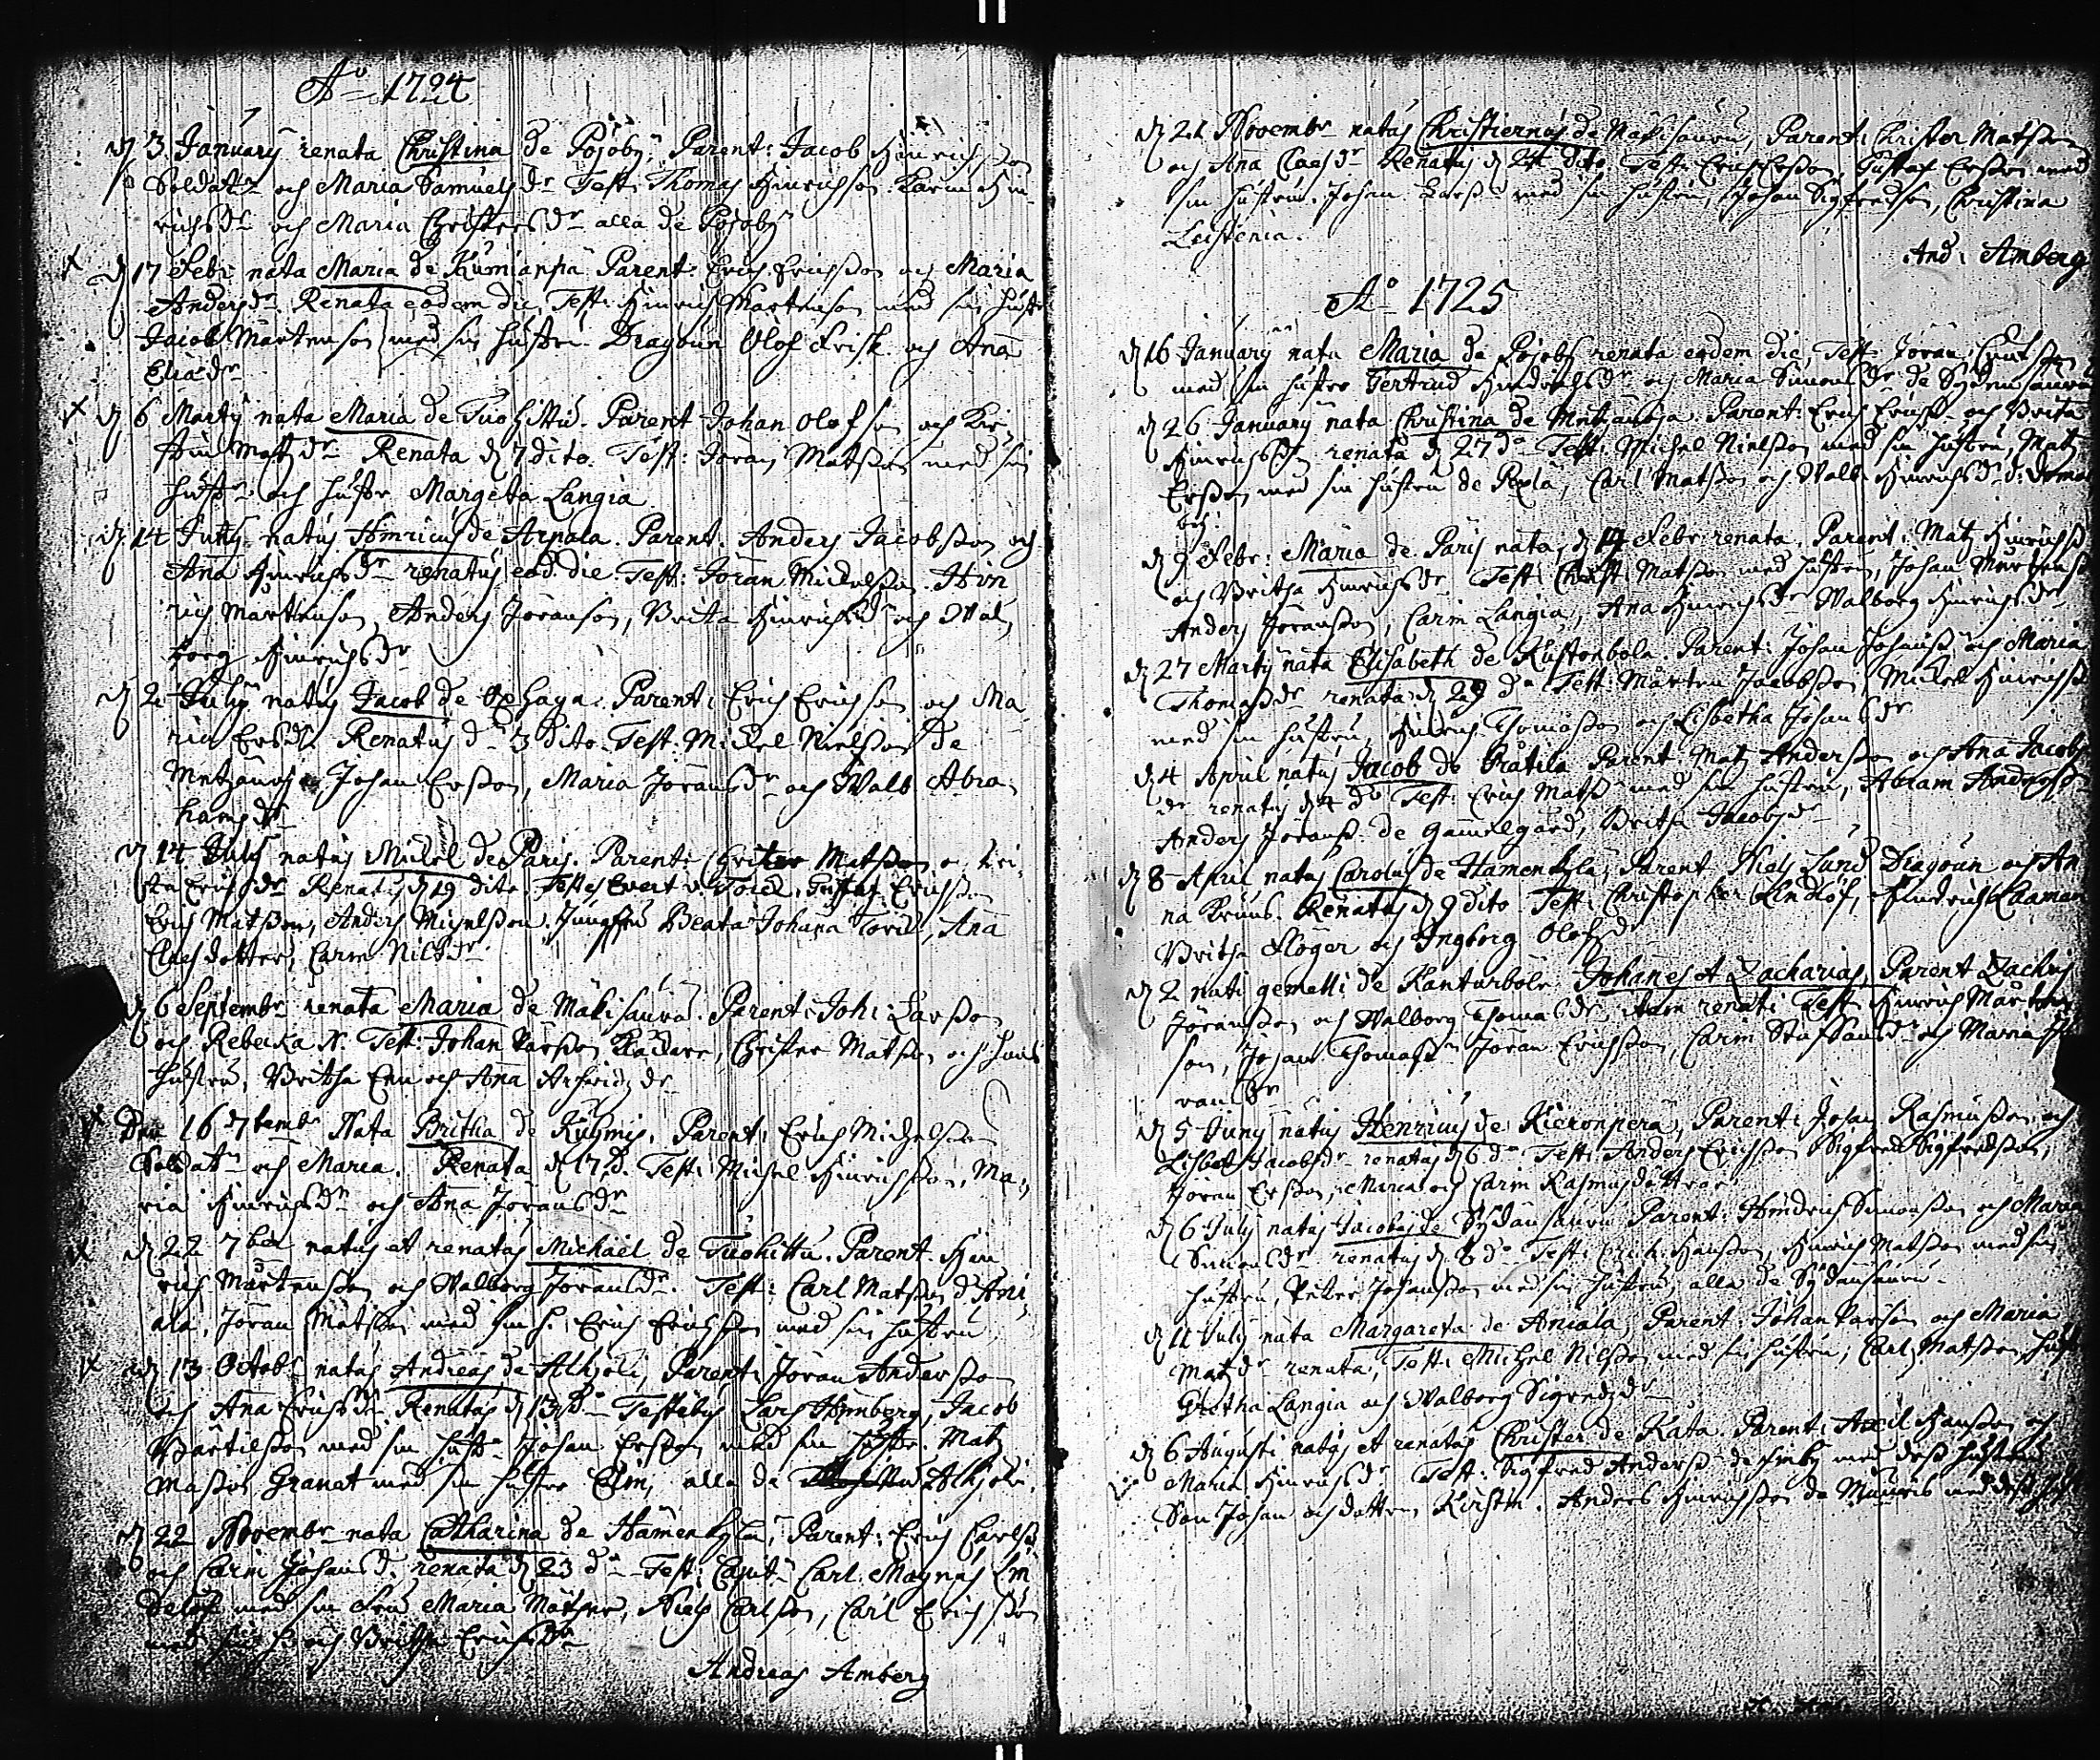 Aō 1724
d 3 January renata Christina de Pojoby, Parent: Jacob Hinrichsson
Soldat och Maria Samuelsdr Test: Thomas Hinrichson Karin Hin-
richsdr och Maria Christersdr alla de Pojoby
d 17 Febr nata Maria de Kumianpä Parent: Erich Erichsson och Maria
Andersdr Renata eodem die, Test: Hinrich Martenson med sin hustr
Jacob Martenson med sin hustru Dragoun Olof Frisk och Ana
Eliædr
d 6 Marty nata Maria de Tuohittu. Parent Johan Olofson och Kir-
stin Matzdr Renata d 7 dito. Test: Jöran Matsson med sin
hustr och hustr Margeta Langia
d 14 natus Hinricus de Arpala. Parent. Anders Jacobsson och
Ana Hinrichsdr renatus eod. die. Test: Jöran Mickelsson. Hin
rich Martenson, Anders Joranson, Brita Hinrichsdr och Wal,
borg Hinrichsdr
d 2 July natus Jacob de Oxhaga. Parent: Erich Erichson och Ma-
ria Ersdr. Renatus d 3 dito. Test: Mickel Nielsson de
Johan Ersson, Maria Joransdr och Walb Abra-
hamsdr
d 14 July natus Mickel de Paris. Parent: Christer Matsson och Bri-
ta Erichsdr Renatus d 19 dito. Testes Evert v. Gustaf Erichsson
Erich Matsson, Anders Michelsson. Jungfru Beata Johana, Ana
Claesdotter, Carin Nilsdr
d 6 Septembr renata Maria de Mäkisauru. Parent: Joh: Larsson
och Rebecka N. Test: Johan Larsson, Christer Matsson och hans
hustru, Britha och Ana
Den 16 7tembr Nata Britha de Kylmis. Parent: Erich Michelsson
Soldat och Maria. Renata d 17 d. Test: Michel Hinrichsson, Ma-
ria Hinrichsdr och Ana Joransdr
d 22 7ber natus et renatus Michael de Tuohittu. Parent. Hin
rich Martensson och Walborg Joransdr. Test: Carl Matsson d Ani
ala, Jöran Matsson med sin h. Erich Erichsson med sin hustru
d 13 Octobr natus Andreas de Alhjoki, Parent: Jöran Andersson
och Ana Erichsdr Renatus d 13 do Testibus Lars Holmberg, Jacob
Bärtilsson med sin hustr Johan Ersson med sin hustr. Matz
Masson Granat med sin hustro Elin, alla de Alhjoki
d 22 Novembr nata Catharina de Hämenkylä, Parent: Erich Carlss
och Carin Johansd. renata d 23 do Test: Capit Carl Magnus Lin
delöf med sin Fru Maria, Niels Carlson, Carl Erichsson
med sin h och Britha Erichsdr
Andreas Amberg
d 21 Novembr natus Christiernus de Mäkisauru, Parent: Christer Matsson
och Ana Claesdr Renatus d 24 dito Test: Erich Ersson, Gustaf Ersson med
sin hustru. Johan Larss med sin hustru, Johan Sigfredson, Christina
Leistenia.
And: Amberg
Aō 1725
d 16 January nata Maria de Pojoby renata eodem die, Test: Jöran Knutsson
med sin hustro Gertrud Hindrichsdr och Maria Simonsdr de Sydensauru
d 26 January nata Christina de Parent: Erich Erichss och Brita
Hinrichsdr renata d 27 do Test: Michel Nielsson med sin hustru, Matz
Ersson med sin hustru de, Carl Matsson och Walb Hinrichsdr d:
by.
d 9 Febr: Maria de Paris nata, d 14 Febr renata. Parent: Matz Hinrichss
och Britha Hinrichsdr Test: Christ: Matsson med hustru, Johan Martenss
Anders Joransson, Carin Langia, Ana Hinrichsdr Walborg Hinrichsdr
d 27 Marty nata Elisabeth de Kustonböla. Parent: Johan Johanss och Maria
Thomasdr renata d 29 do Test: Mårten Jacobsson, Mickel Hinrichss
med sin hustru, Hinrich Thomasson och Lisbetha Johansdr
d 4 April natus Jacob de Pratila Parent Matz Andersson och Ana Jacobs
dr renatus d 4 do Test: Erich Matss med sin hustru, Abram Anderss
Anders Joranss de Gammelgård, Britha Jacobsdr
d 8 April natus Carolus de Hämenkylä, Parent Niels Lund Dragoun och An
na Bruus. Renatus d 9 dito Test: Christopher Lindlöf, Hindrich
Britha Flöger och Ingborg Olofsdr
d 2 nati gemelli de Kanturböle Johanes et Zacharias, Parent Zachris
Joransson och Walborg Thomasdr, item renati Test Hinrich Marten
son, Johan Thomass Jöran Erichsson, Carin Staffansdr och Maria Jö
ransdr
d 5 Juny natus Henricus de Kieronperä, Parent: Johan Rasmusson och
Lisbet Jacobsdr renatus d 6 do Test: Anders Erichsson Sigfred Sigfredsson,
Jöran Ersson, Maria och Carin Rasmusdöttrar
d 6 July natus Jacobus de Sydansauru Parent: Hindrich Simonsson och Maria
Simonsdr renatus d 8 do Test: Erich Hansson, Hinrich Matsson med sin
hustru, Petter Johansson med sin hustru, alla de Sydansauru
d 11 July nata Margareta de Aniala, Parent: Johan Larson och Maria
Matzdr renata, Test: Michel Nilsson med sin hustru, Carl Matsson hust
Gretha Langia och Walborg Sigredzdr
d 6 Augusti natus et renatus Christer de Kata. Parent: Axel Hansson och
Maria Hinrichsdr Test: Sigfred Anderss de med dess hustru
Son Johan och dotter Kirstin. Anders Hinrichsson de Mauris med dess